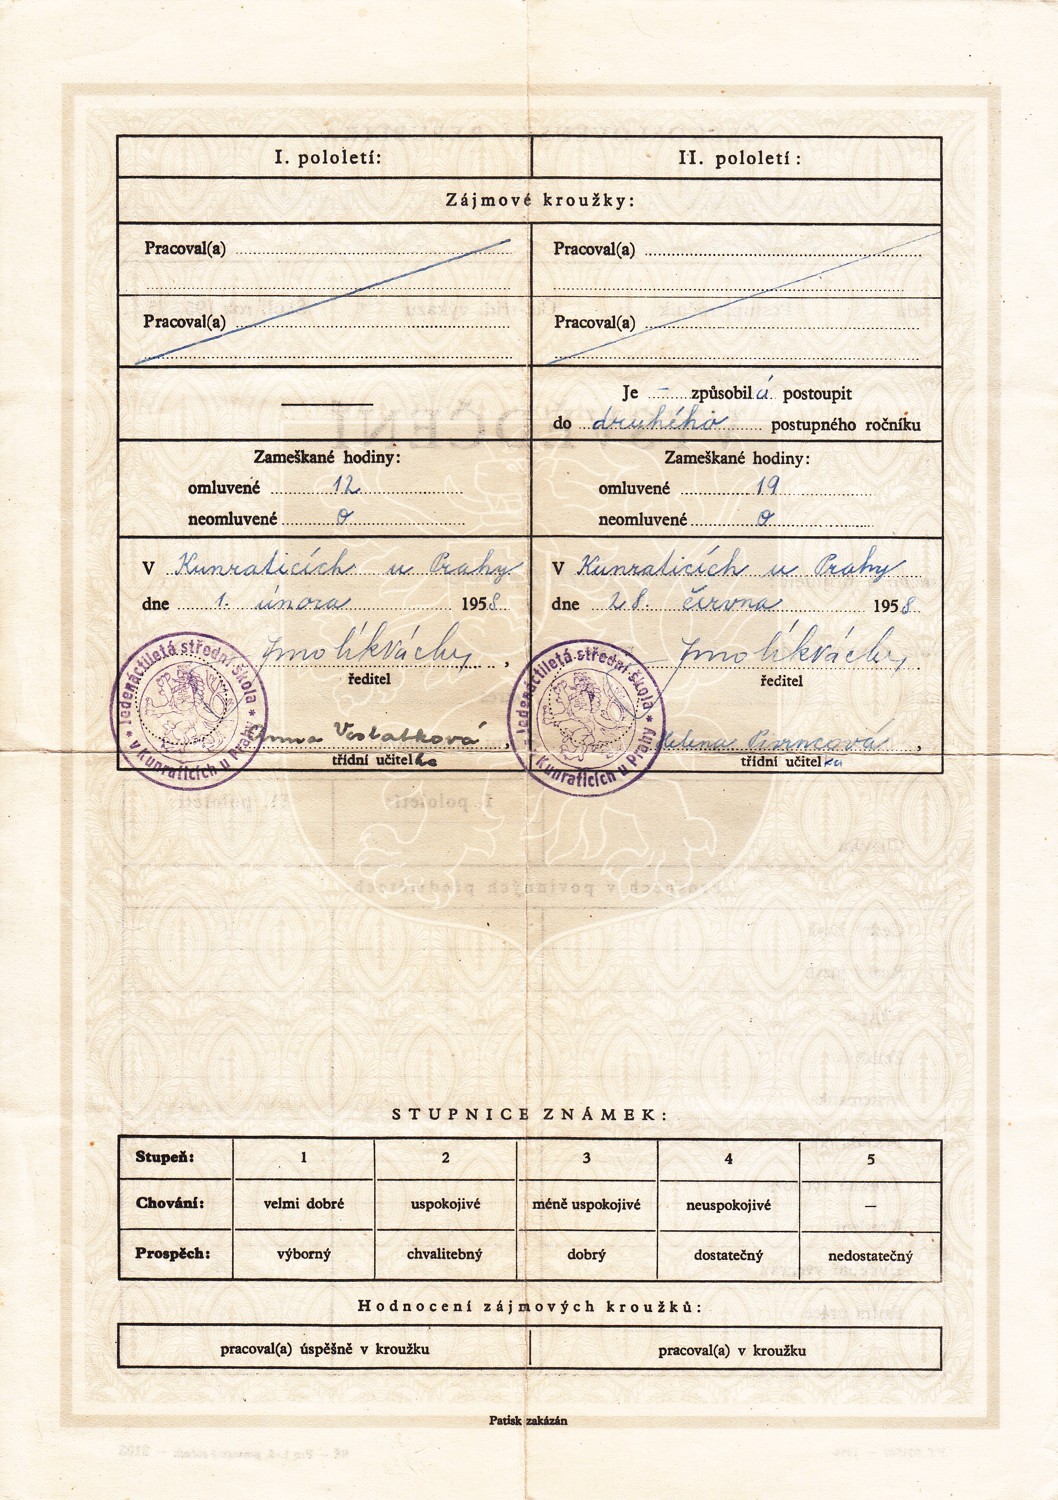 I. pololetí: II. pololetí:
Zájmové kroužky:
Pracoval(a) Pracoval(a)
Pracoval(a) Pracoval(a)
Je – způsobilá postoupit
do druhého postupného ročníku
Zameškané hodiny: Zameškané hodiny:
omluvené 12 omluvené 19
neomluvené 0 neomluvené 0
V Kunraticích u Prahy V Kunraticích u Prahy
dne 1. února 1958 dne 28. června 1958
ředitel ředitel
Jedenáctiletá střední škola * v Kunraticích u Prahy * Jedenáctiletá střední škola * v Kunraticích u Prahy *
Anna Helena
třídní učitelka třídní učitelka
STUPNICE ZNÁMEK:
Stupeň: 1 2 3 4 5
Chování: velmi dobré uspokojivé méně uspokojivé neuspokojivé —
Prospěch: výborný chvalitebný dobrý dostatečný nedostatečný
Hodnocení zájmových kroužků:
pracoval(a) úspěšně v kroužku pracoval(a) v kroužku
Patisk zakázán